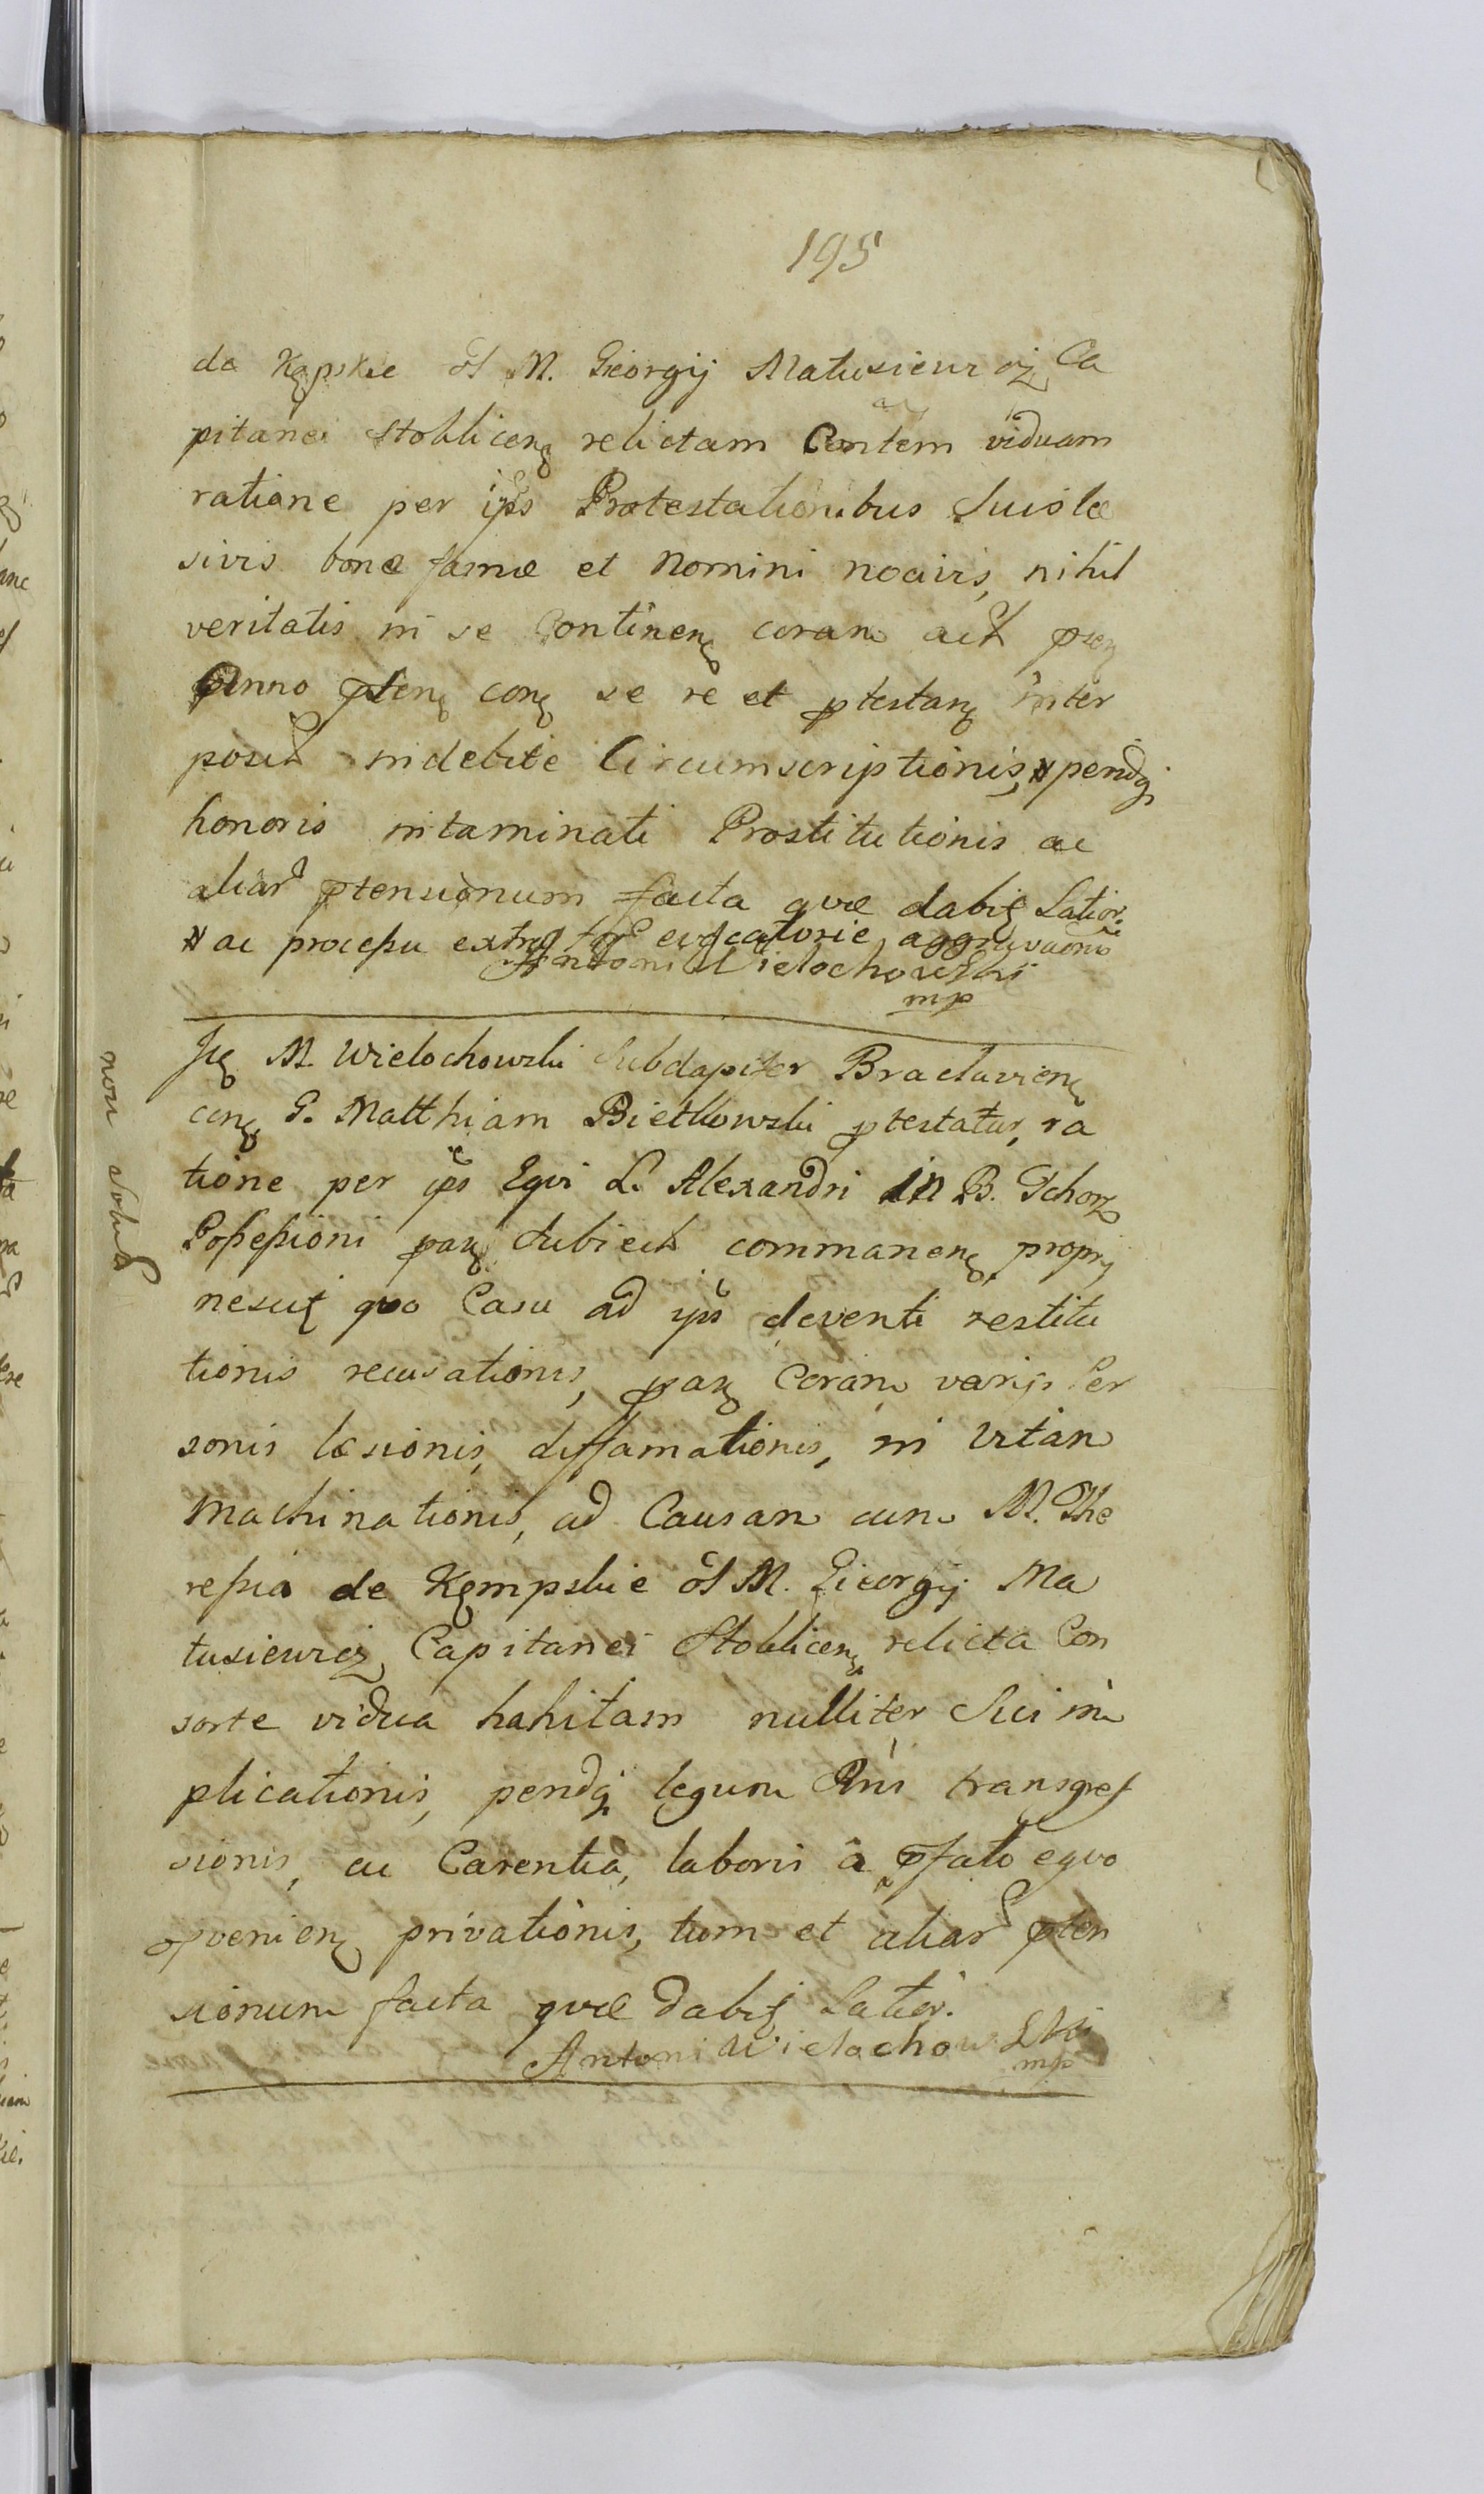 195
de Kępskie ol M. Georgij Matusiewicz Ca
pitanei Stokliceñ relictam Contem viduam
ratione per ips Protestationibus Suis læ
sivis bonæ famæ et Nomini nocivis, nihil
veritatis in se Continen coram act psen
Anno pten con se re et ptestan inter
posit indebite Circumscriptionis, # pendgj
honoris intaminati Prostitutionis ac
aliar ptensionum facta quæ dabit Latior.
# ac processu extra evocatorie aggravaonis
Antoni Wielochowski
mp
It M. Wielochowski Subdapifer Braclavien
con G. Matthiam Bietkowski ptestatur, ra
tione per ips Equi L. Alexandri in B. Tchorz
Possessioni pan Subiect commanen proprij
nescit quo Casu ad ips deventi restitu
tionis recusationis, pan Coram varijs Per
sonis læsionis, diffamationis, in vitam
Machinationis, ad Causam cum M. The
ressia de Kempskie ol M. Georgij Ma
tusiewicz Capitanei Stokliceñ relicta Con
sorte vidua habitam nulliter Sui im
plicationis, pendgj legum Rni transgres
sionis, ac Carentia, laboris â pfato equo
pvenien privationis, tum et aliar pten
sionum facta quæ dabit Latior.
Antoni Wielochowski
mp
non solut